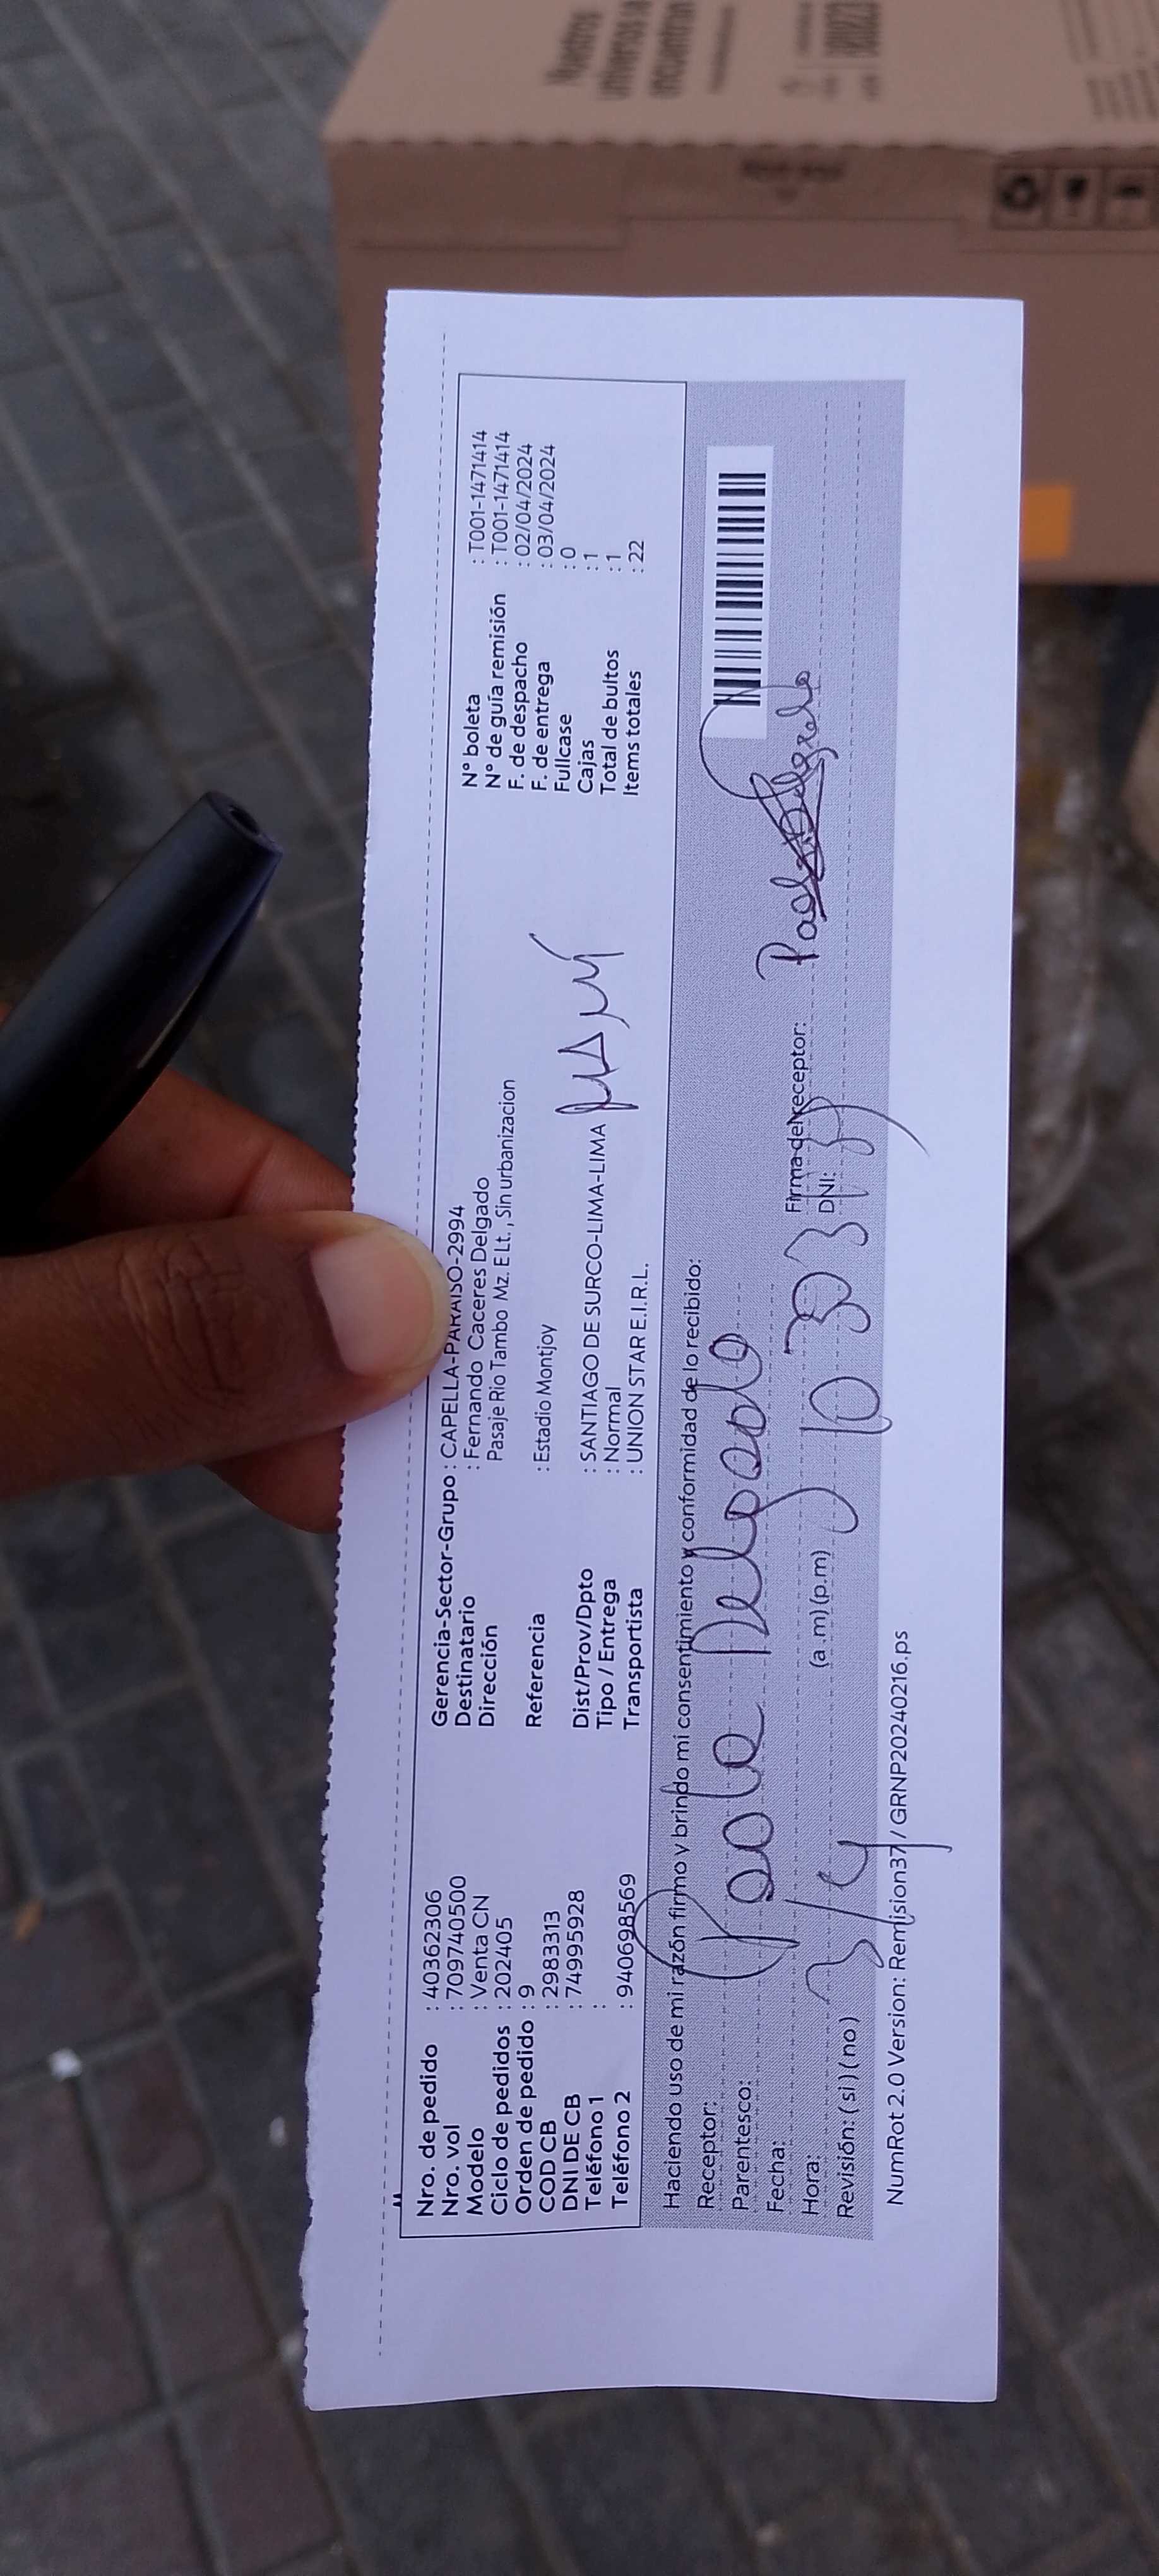 Nro. de pedido : 40362306
Nro. vol : 709740500
Modelo : Venta CN
Ciclo de pedidos : 202405
Orden de pedido : 9
COD CB : 2983313
DNI DE CB : 74995928
Teléfono 1 :
Teléfono 2 : 940698569
Gerencia-Sector-Grupo : CAPELLA-PARAISO-2994
Destinatario : Fernando Caceres Delgado
Dirección Pasaje Rio Tambo Mz. E Lt. , Sin urbanizacion
Referencia : Estadio Montjoy
Dist/Prov/Dpto : SANTIAGO DE SURCO-LIMA-LIMA
Tipo / Entrega : Normal
Transportista : UNION STAR E.I.R.L.
N° boleta : T001-1471414
N° de guía remisión : T001-1471414
F. de despacho : 02/04/2024
F. de entrega : 03/04/2024
Fullcase : 0
Cajas : 1
Total de bultos : 1
Items totales : 22
Haciendo uso de mi razón firmo y brindo mi consentimiento y conformidad de lo recibido:
Receptor: Delgado
Parentesco:
Fecha: 3/4
Hora: (a.m) (p.m)
Revisión: ( si ) ( no )
Firma del receptor: Delgado
DNI:
NumRot 2.0 Version: Remision37 / GRNP20240216.ps
Nuestros
universos se
encuentran